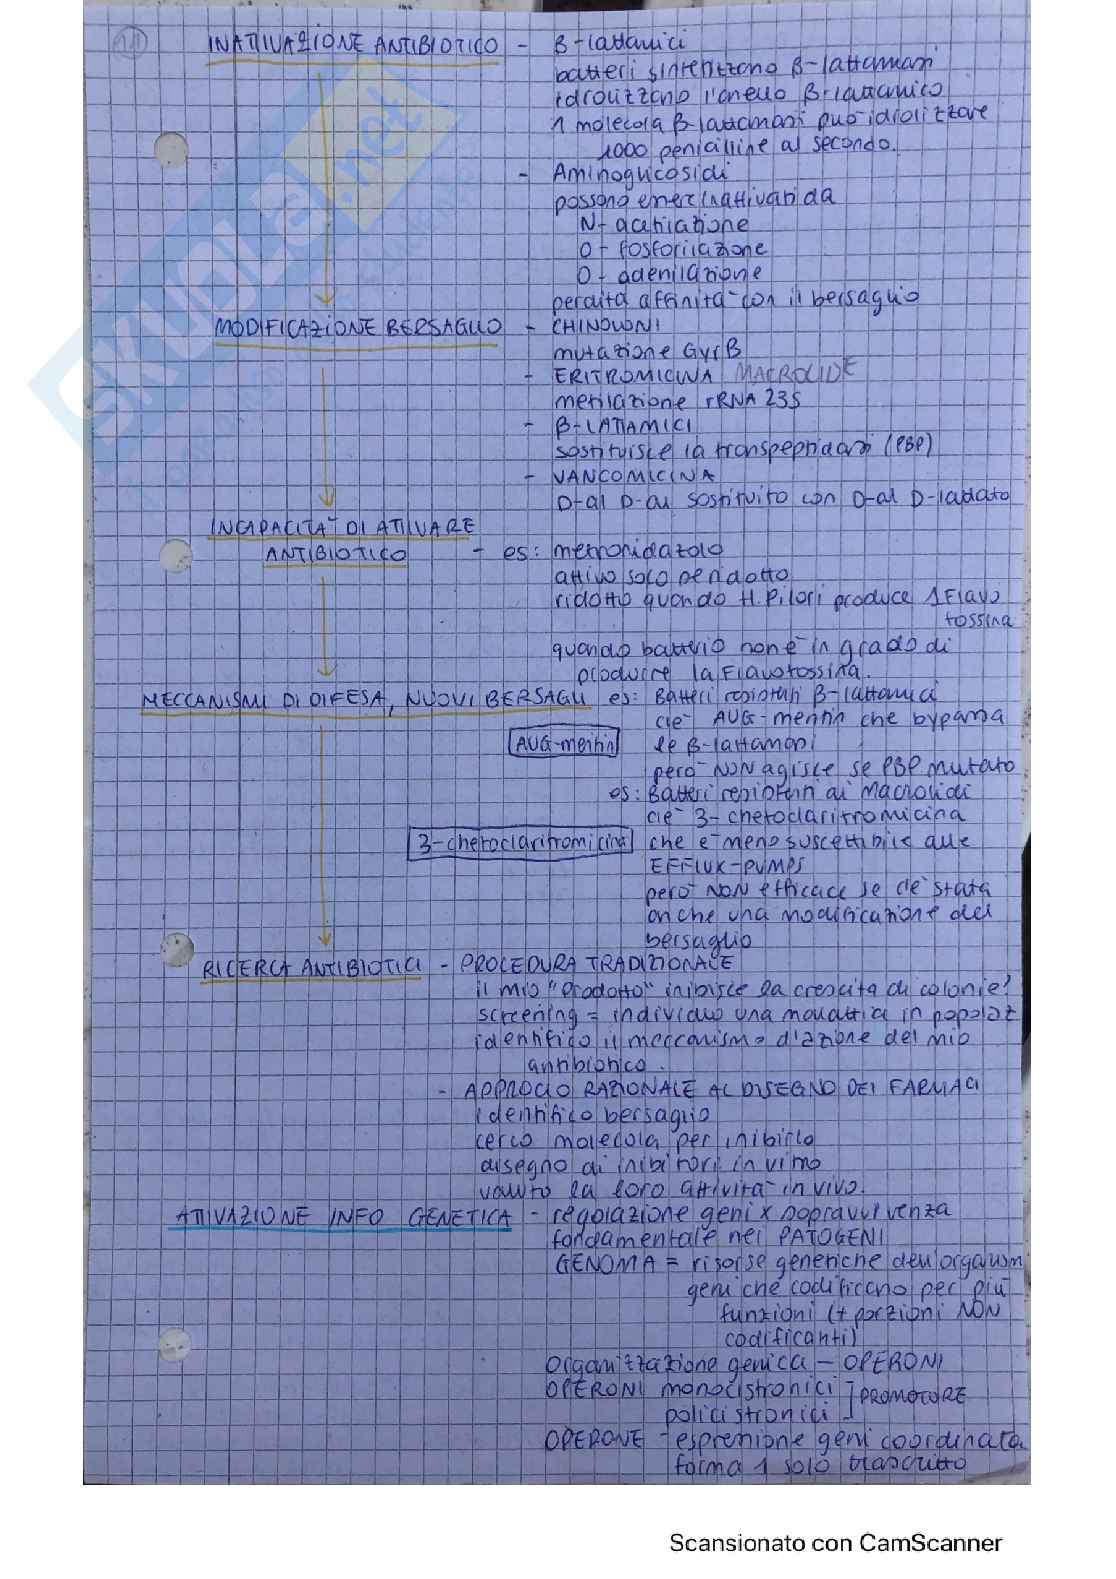 INATTIVAZIONE ANTIBIOTICO - β-lattamici
batteri sintetizzano β-lattamasi
idrolizzano l'anello β-lattamico
1 molecola β-lattamasi può idrolizzare
1000 penicilline al secondo.
- Aminoglicosidi
possono essere inattivati da
N- acetilazione
O- fosforilazione
O- adenilazione
perdita affinità con il bersaglio
MODIFICAZIONE BERSAGLIO - CHINOLONI
mutazione GyrB
- ERITROMICINA MACROLIDE
metilazione rRNA 23S
- β-LATTAMICI
sostituisce la transpeptidasi (PBP)
- VANCOMICINA
D-al D-al sostituito con D-al D-lattato
INCAPACITÀ DI ATTIVARE
ANTIBIOTICO - es: metronidazolo
attivo solo se ridotto
ridotto quando H. Pilori produce 1 Flavo
tossina
quando batterio non è in grado di
produrre la Flavotossina.
MECCANISMI DI DIFESA, NUOVI BERSAGLI es: Batteri resistenti β-lattamici
c'è AUG-mentin che bypassa
AUG-mentin le β-lattamasi
però NON agisce se PBP mutato
es: Batteri resistenti ai Macrolidi
c'è 3-chetoclaritromicina
3-chetoclaritromicina che è meno suscettibile alle
EFFLUX-PUMPS
però NON efficace se c'è stata
anche una modificazione del
bersaglio
RICERCA ANTIBIOTICI - PROCEDURA TRADIZIONALE
il mio "prodotto" inibisce la crescita di colonie?
screening = individuo una malattia in popolaz
identifico il meccanismo d'azione del mio
antibiotico.
- APPROCIO RAZIONALE AL DISEGNO DEI FARMACI
identifico bersaglio
cerco molecola per inibirlo
disegno di inibitori in vitro
valuto la loro attività in vivo.
ATTIVAZIONE INFO GENETICA - regolazione geni x sopravvivenza
fondamentale nei PATOGENI
GENOMA = risorse genetiche dell'organism
geni che codificano per più
funzioni (+ porzioni NON
codificanti)
Organizzazione genica - OPERONI
OPERONI monocistronici ] PROMOTORE
policistronici
OPERONE - espressione geni coordinata
forma 1 solo trascritto
Scansionato con CamScanner